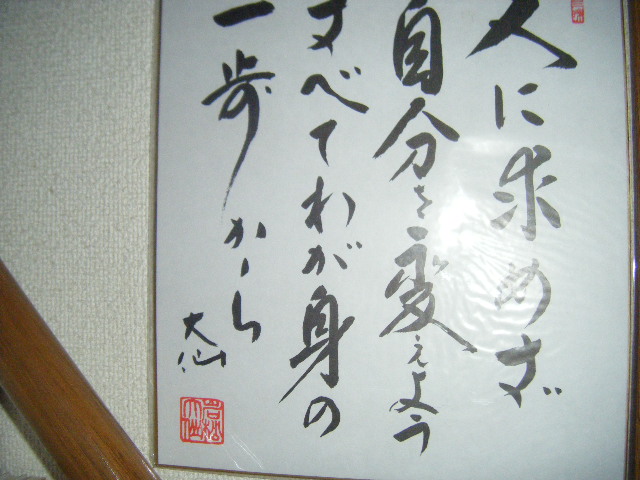 人に求めず
自分を変えよう
すべてわが身の
一歩から
大仙